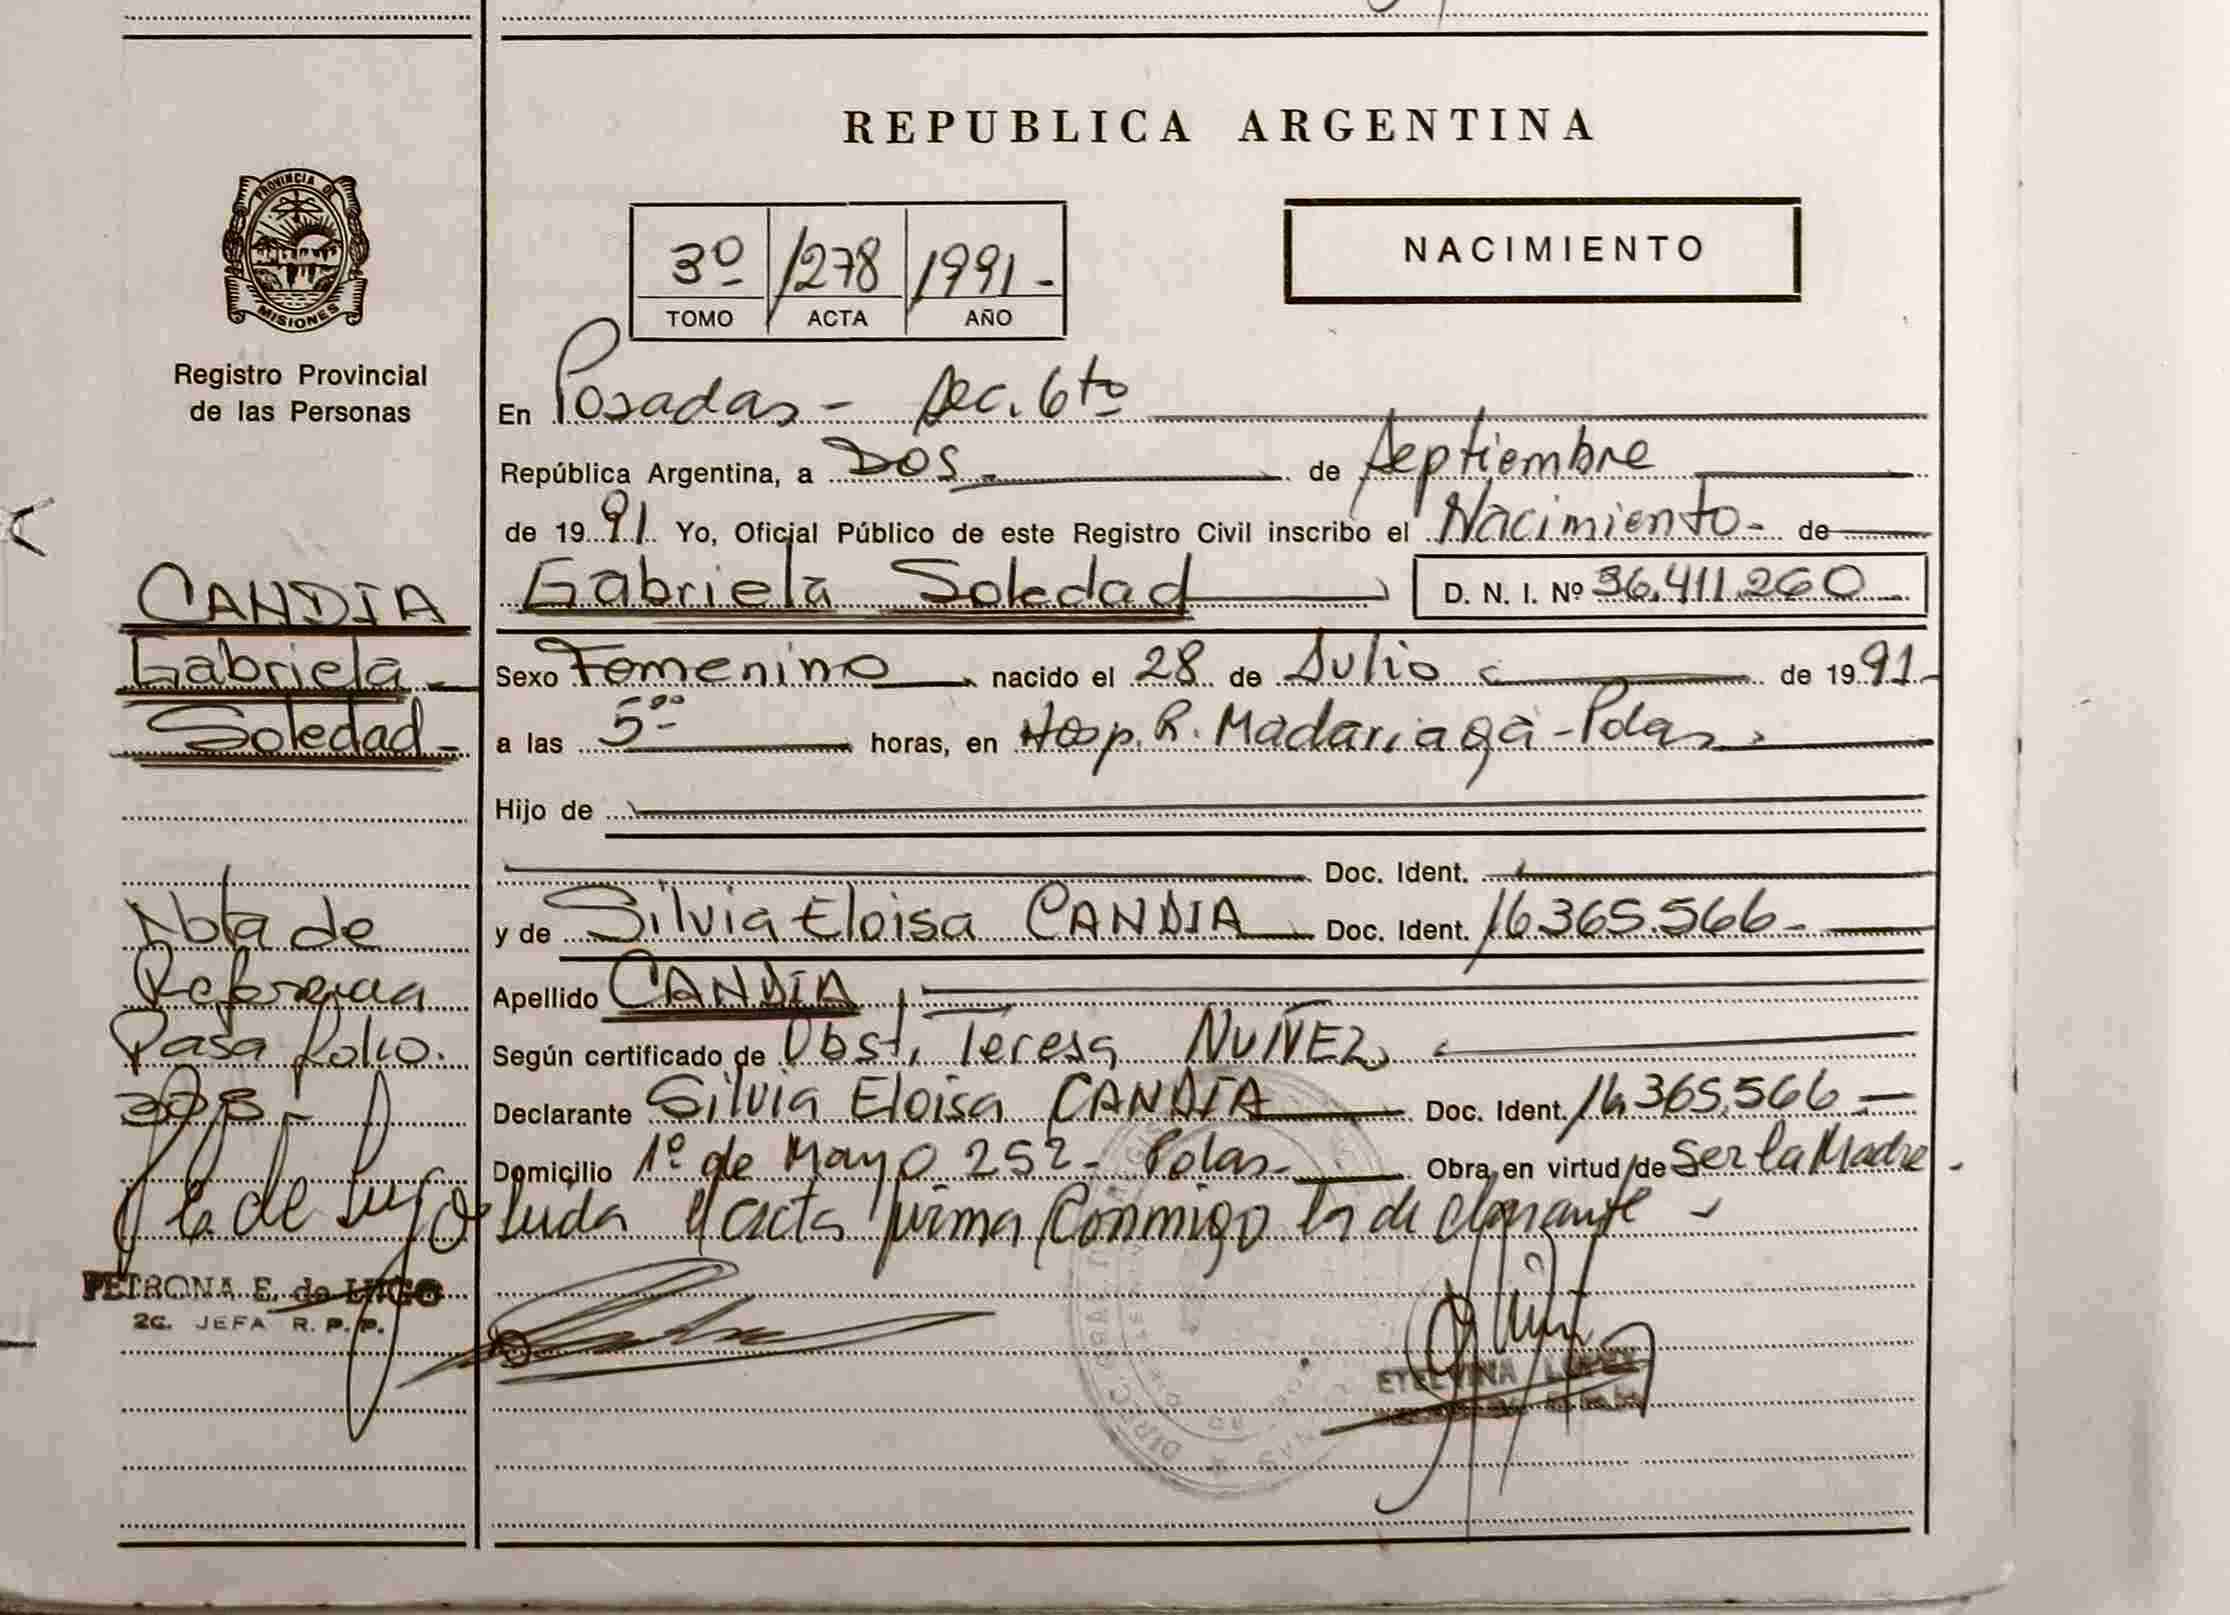 REPUBLICA ARGENTINA
PROVINCIA DE
MISIONES
Registro Provincial
de las Personas
NACIMIENTO
3º /278 /1991-
TOMO ACTA AÑO
En Posadas - Sec. 6to
República Argentina, a DOS de Septiembre
de 1991 Yo, Oficial Público de este Registro Civil inscribo el Nacimiento- de
Gabriela Soledad D. N. I. Nº 36.411.260
Sexo Femenino nacido el 28 de Julio de 1991-
a las 5ºº horas, en Hosp. R. Madariaga - Pdas
Hijo de
Doc. Ident.
y de Silvia Eloisa CANDIA Doc. Ident. 16.365.566-
Apellido CANDIA
Según certificado de Obst. Teresa NUÑEZ
Declarante Silvia Eloisa CANDIA Doc. Ident. 16.365.566-
Domicilio 1º de Mayo 252- Pdas- Obra en virtud de Ser la Madre-
Leida el acta firma conmigo la declarante
ETELVINA
CANDIA
Gabriela
Soledad-
Nota de
Referencia
Pasa folio.
de Lugo
PETRONA E. de LUGO
2a. JEFA R. P. P.